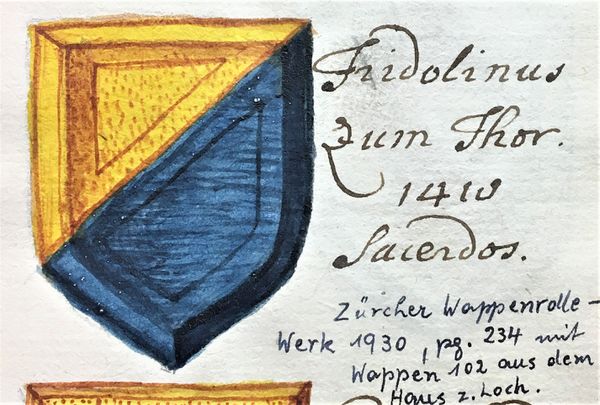 Fridolinus
Zum Thor.
1410
Sacerdos.
Zürcher Wappenrolle-
Werk 1930, pg. 234 mit
Wappen 102 aus dem
Haus z. Loch.